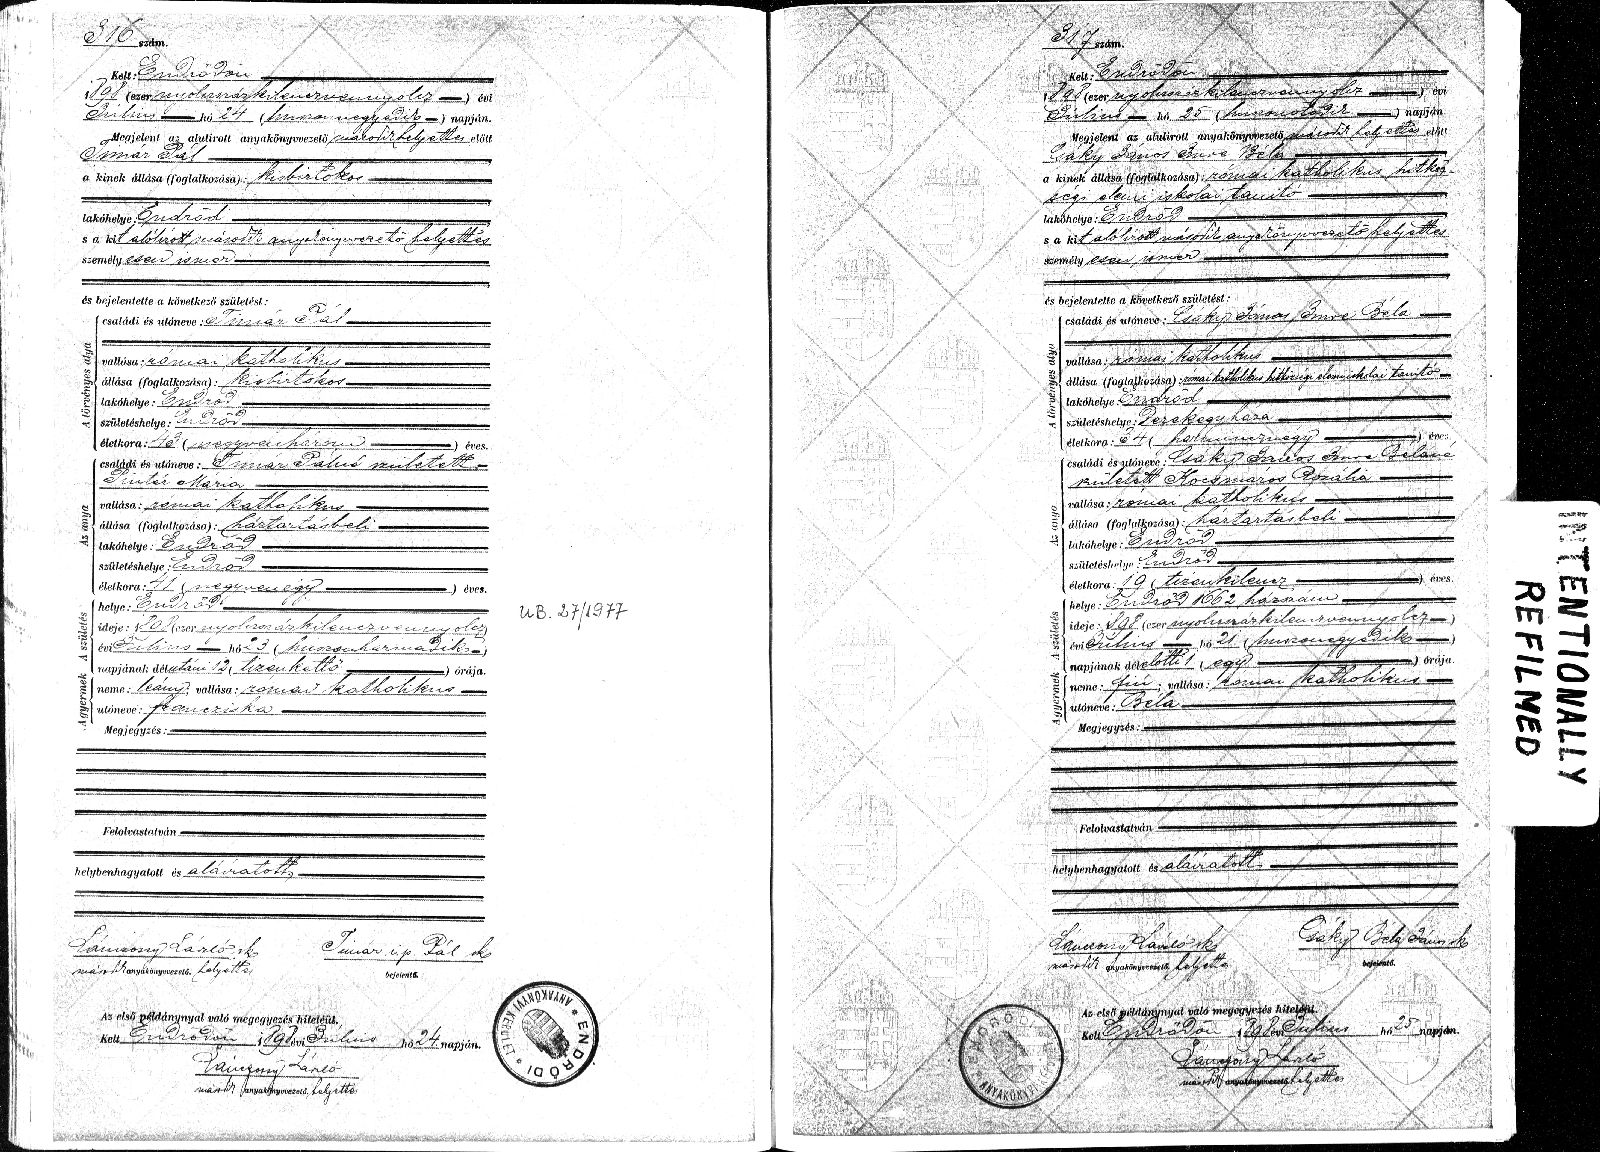 316 szám.
Kelt: Endrődön
1898 (ezer nyolcszázkilenczvennyolcz) évi
Julius hó 24 (huszonnegyedik) napján.
Megjelent az alulirott anyakönyvvezető másodikhelyettes előtt
Timár Pál
a kinek állása (foglalkozása): kisbirtokos
lakóhelye: Endrőd
s a kit alólirott második anyakönyvvezető helyettes
személyesen ismer
és bejelentette a következő születést:
A törvényes atya
családi és utóneve: Timár Pál
vallása: római katholikus
állása (foglalkozása): kisbirtokos
lakóhelye: Endrőd
születéshelye: Endrőd
életkora: 43 (negyvenhárom) éves.
Az anya
családi és utóneve: Timár Pálné született
Pintér Mária
vallása: római katholikus
állása (foglalkozása): háztartásbeli
lakóhelye: Endrőd
születéshelye: Endrőd
életkora: 41 (negyvenegy) éves.
A születés
helye: Endrőd
ideje: 1898 (ezer nyolcszázkilenczvennyolcz)
évi Julius hó 23 (huszonharmadik)
napjának délutáni 12 (tizenkettő) órája.
A gyermek
neme: leány; vallása: római katholikus
utóneve: Francziska
Megjegyzés:
Felolvastatván
helybenhagyatott és aláiratott
Lánczony László sk
Timár ifp Pál sk
második anyakönyvvezető, helyettes
bejelentő.
Az első példánynyal való megegyezés hiteléül.
Kelt Endrődön 1898 évi Julius hó 24. napján.
Lánczony László
másodk anyakönyvvezető, helyettes
ENDRŐDI ANYAKÖNYVI KERÜLET
UB. 27/1977
317 szám.
Kelt: Endrődön
1898 (ezer nyolcszázkilenczvennyolcz) évi
Julius hó 25 (huszonötödik) napján
Megjelent az alulirott anyakönyvvezető másodikhelyettes előtt
Csáky János Imre Béla
a kinek állása (foglalkozása): római katholikus hitköz-
ségi elemi iskolai tanitó
lakóhelye: Endrőd
s a kit alólirott második anyakönyvvezető helyettes
személyesen ismer
és bejelentette a következő születést:
A törvényes atya
családi és utóneve: Csáky János Imre Béla
vallása: római katholikus
állása (foglalkozása): római katholikus hitközségi elemi iskolai tanitó
lakóhelye: Endrőd
születéshelye: Dezsőegyháza
életkora: 34 (harmincznégy) éves
Az anya
családi és utóneve: Csáky János Imre Béláné
született Kocsmáros Rozália
vallása: római katholikus
állása (foglalkozása): háztartásbeli
lakóhelye: Endrőd
születéshelye: Endrőd
életkora: 19 (tizenkilencz) éves.
A születés
helye: Endrőd 1662 házszám
ideje: 1898 (ezer nyolcszázkilenczvennyolcz)
évi Julius hó 21 (huszonegyedik)
napjának délelőtti 1 (egy) órája.
A gyermek
neme: fiú; vallása: római katholikus
utóneve: Béla
Megjegyzés:
Felolvastatván
helybenhagyatott és aláiratott
Lánczony László sk
Csáky Béla János sk
másodk anyakönyvvezető, helyettes
bejelentő.
Az első példánynyal való megegyezés hiteléül.
Kelt Endrődön 1898 évi Julius hó 25 napján.
Lánczony László
másodk anyakönyvvezető, helyettes
INTENTIONALLY
REFILMED